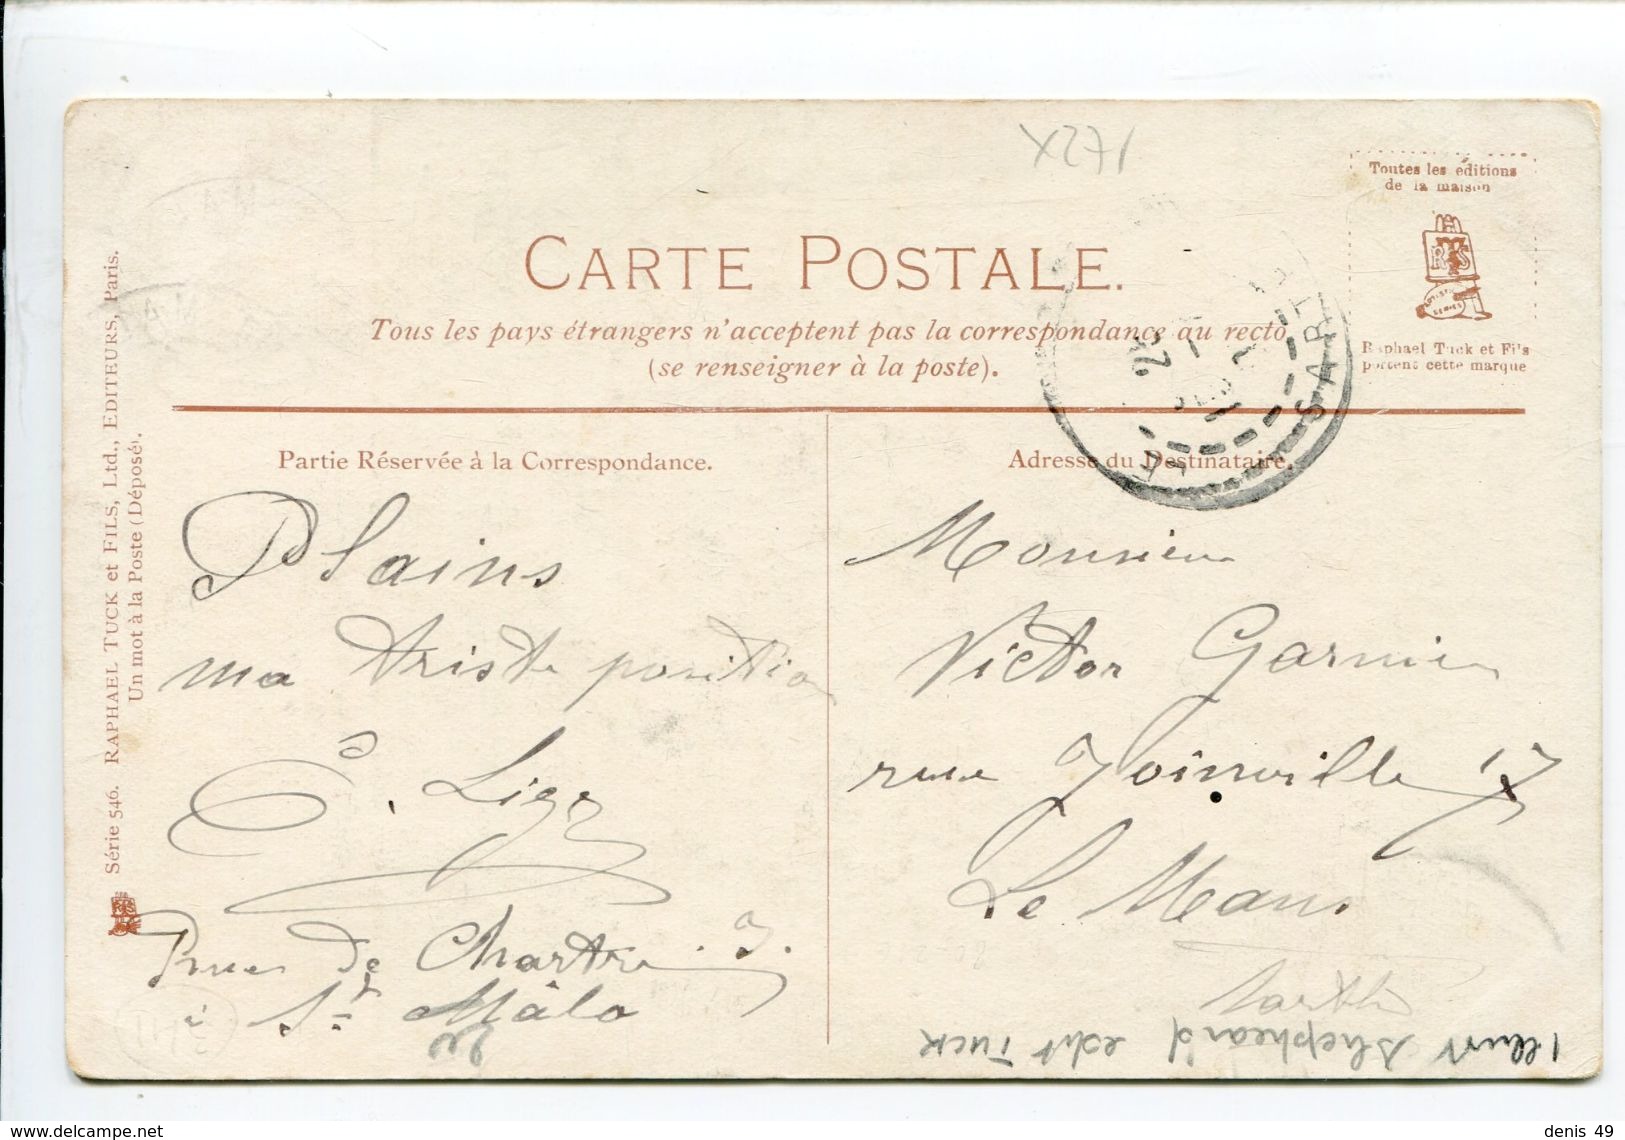 172X
Toutes les éditions
de la maison
RTS
Raphael Tuck et Fils
portent cette marque
CARTE POSTALE.
Tous les pays étrangers n'acceptent pas la correspondance au recto
(se renseigner à la poste).
SARTHE
Partie Réservée à la Correspondance.
Plains
ma triste position
de Chartres 7.
à St Mâlo
Adresse du Destinataire.
Monsieur
Victor Garnier
rue Joinville 17
Le Mans
Sarthe
Illust Shepheard edit Tuck
Série 546. RAPHAEL TUCK et FILS, Ltd., EDITEURS, Paris.
Un mot à la Poste (Déposé).
www.delcampe.net
denis 49